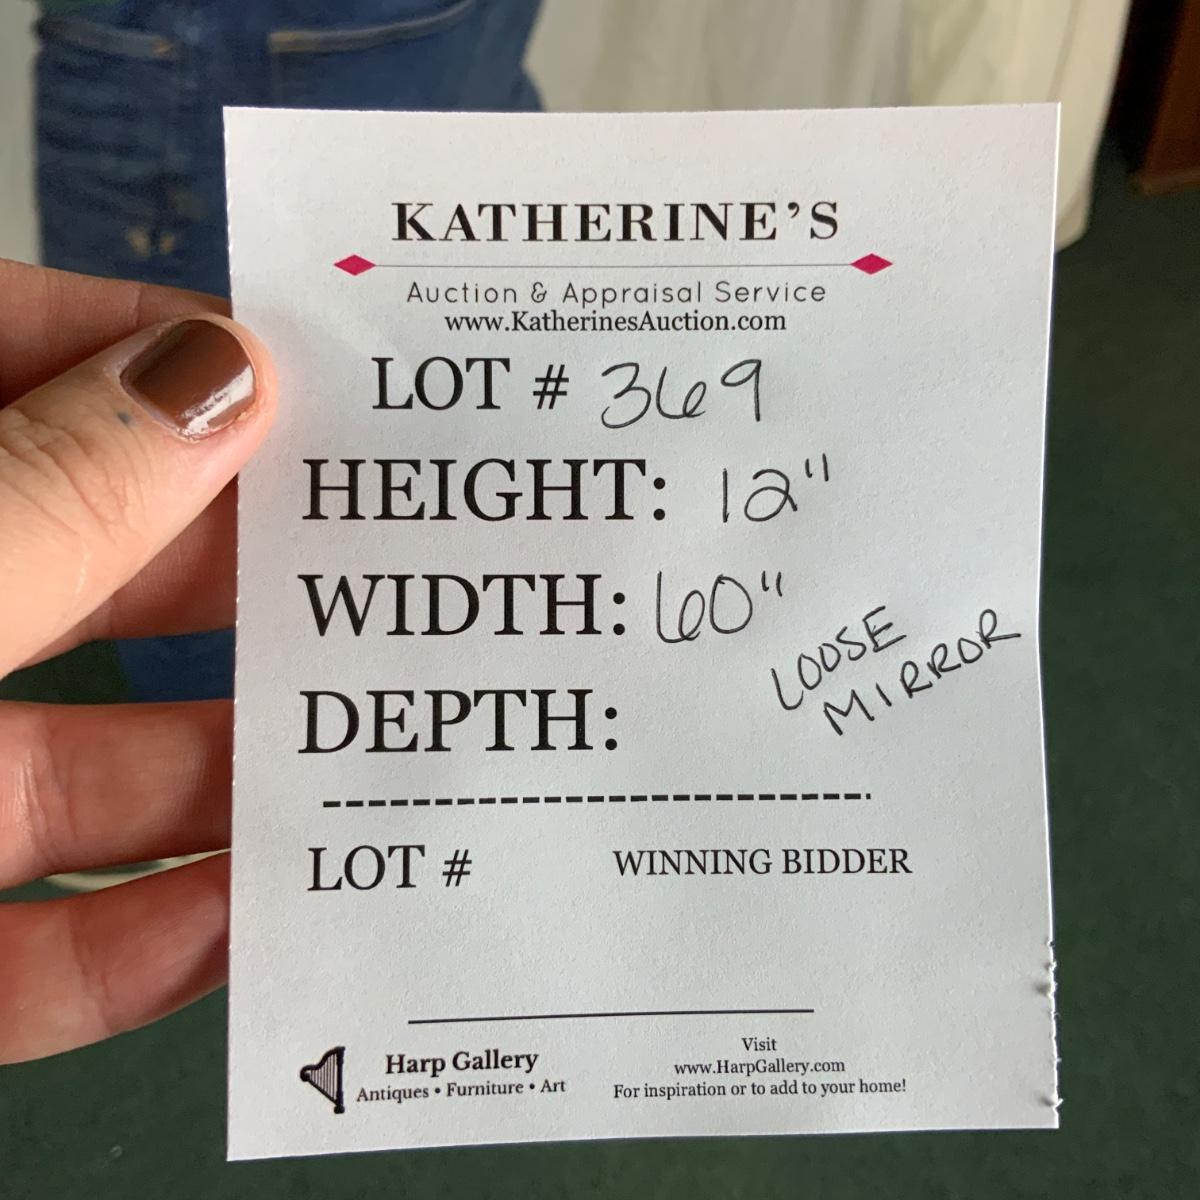 KATHERINE'S
Auction & Appraisal Service
www.KatherinesAuction.com
LOT # 369
HEIGHT: 12"
WIDTH: 60"
LOOSE
MIRROR
DEPTH:
---------------------------.
LOT # WINNING BIDDER
Harp Gallery
Antiques • Furniture • Art
Visit
www.HarpGallery.com
For inspiration or to add to your home!